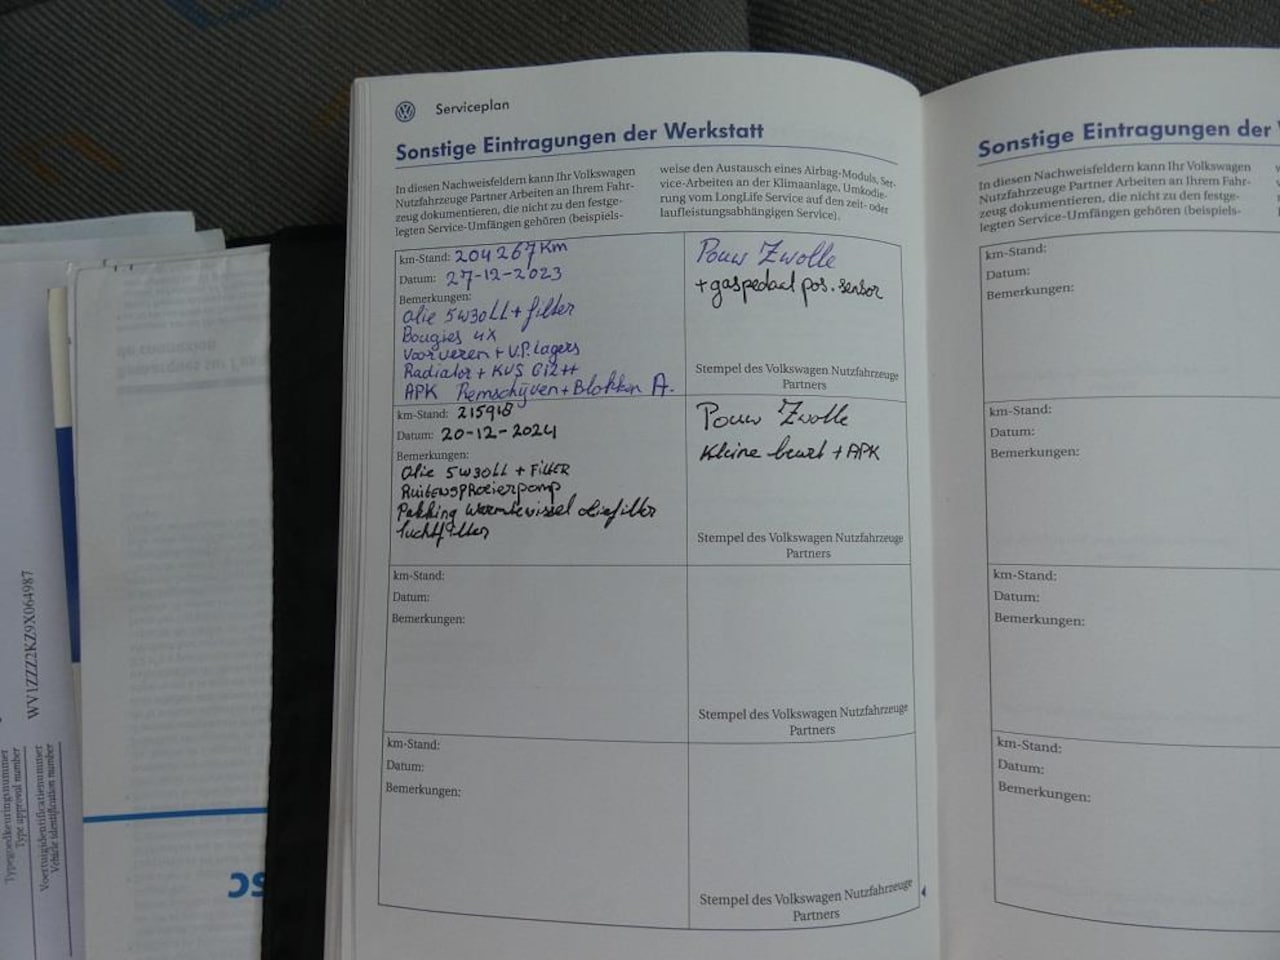 Serviceplan
Sonstige Eintragungen der Werkstatt
In diesen Nachweisfeldern kann Ihr Volkswagen
Nutzfahrzeuge Partner Arbeiten an Ihrem Fahr-
zeug dokumentieren, die nicht zu den festge-
legten Service-Umfängen gehören (beispiels-
weise den Austausch eines Airbag-Moduls, Ser-
vice-Arbeiten an der Klimaanlage, Umkodie-
rung vom LongLife Service auf den zeit- oder
laufleistungsabhängigen Service).
km-Stand: 204267 Km
Datum: 27-12-2023
Bemerkungen:
Olie 5W30LL + filter
Bougies 4X
Voorveren + V.P. Lagers
Radiator + KVS G12++
APK Remschijven + Blokken A.
Pouw Zwolle
+ gaspedaal pos. sensor
Stempel des Volkswagen Nutzfahrzeuge
Partners
km-Stand: 215918
Datum: 20-12-2024
Bemerkungen:
Olie 5W30LL + FilTER
Ruitensproeierpomp
Pakking Warmtewissel oliefilter
luchtfilter
Pouw Zwolle
Kleine beurt + APK
Stempel des Volkswagen Nutzfahrzeuge
Partners
km-Stand:
Datum:
Bemerkungen:
Stempel des Volkswagen Nutzfahrzeuge
Partners
km-Stand:
Datum:
Bemerkungen:
Stempel des Volkswagen Nutzfahrzeuge
Partners
Sonstige Eintragungen der
In diesen Nachweisfeldern kann Ihr Volkswagen
Nutzfahrzeuge Partner Arbeiten an Ihrem Fahr-
zeug dokumentieren, die nicht zu den festge-
legten Service-Umfängen gehören (beispiels-
km-Stand:
Datum:
Bemerkungen:
km-Stand:
Datum:
Bemerkungen:
km-Stand:
Datum:
Bemerkungen:
km-Stand:
Datum:
Bemerkungen:
Typegoedkeuringsnummer
Type approval number
Voertuigidentificatienummer
Vehicle identification number
WV1ZZZ2KZ9X064987